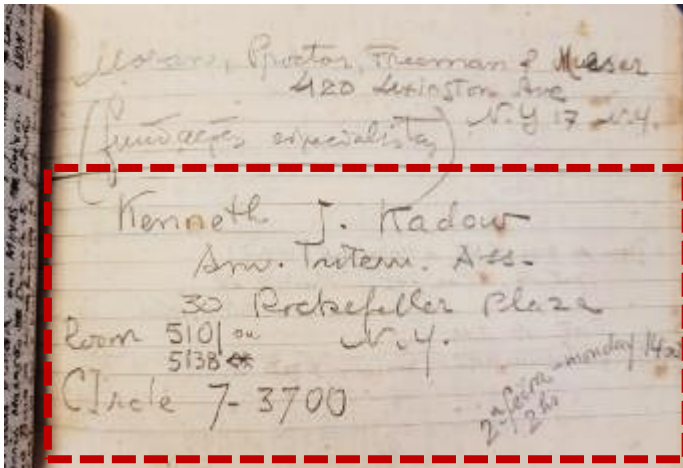 Moran, Proctor, Freeman & Mueser
420 Lexington Ave
N.Y 17 N.Y.
(fundações especialistas)
Kenneth J. Kadow
Am. Intern. Ass.
30 Rockefeller Plaza
Room 5101 ou N.Y.
5138
CIrcle 7-3700
2ª feira - monday 14
2 hs